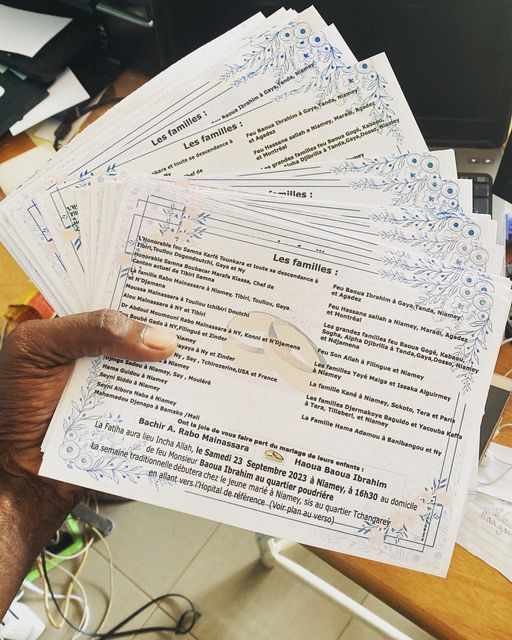 Les familles :
Feu Baoua Ibrahim à Gaya,Tanda, Niamey
et Agadez
Feu Hassane saliah a Niamey, Maradi, Agadez
et Montréal
Les familles :
Les familles :
Les familles :
L'Honorable feu Samna Karfé Tounkara et toute sa descendance à
Tibiri,Toullou Dogondoutchi, Gaya et Ny
Honorable Samna Boubacar Marafa Kiassa, Chef de
Canton actuel de Tibiri Samna
La famille Rabo Mainassara à Niamey, Tibiri, Toullou, Gaya
et N'Djamena
Moussa Mainassara à Toullou Ichibiri Doutchi
Alou Mainassara à NY et Tibiri
Dr Abdoul Moumouni Rabo Mainassara à NY, Konni et N'Djamena
Boubé Gado à NY,Filingué et Zinder
Niamey
à Ny et Zinder
Ny, Say , Tchirozerine,USA et France
Djingo Sadou à Niamey, Say , Mouléré
Hama Guidou à Niamey
Seyni Siddo à Niamey
Seyni Albora Naba à Niamey
Mahamadou Djenapo à Bamako /Mali
Feu Baoua Ibrahim à Gaya,Tanda, Niamey
et Agadez
Feu Hassane saliah a Niamey, Maradi, Agadez
et Montréal
Les grandes familles feu Baoua Gogé, Kabaou,
Sogha, Alpha Djibrilla à Tanda,Gaya,Dosso, Niamey
et Ndjamena
Feu Son Allah à Filingue et Niamey
Les familles Yayé Maiga et Issaka Aiguirmey
à Niamey
La famille Kané à Niamey, Sokoto, Tera et Paris
Les familles Djermakoye Baguido et Yacouba Kaffa
à Tera, Tillaberi, et Niamey
La Famille Hama Adamou à Banibangou et Ny
Ont la joie de vous faire part du mariage de leurs enfants :
Bachir A. Rabo Mainassara Haoua Baoua Ibrahim
La Fatiha aura lieu Incha Allah, le Samedi 23 Septembre 2023 à Niamey, à 16h30 au domicile
de feu Monsieur Baoua Ibrahim au quartier poudrière
La semaine traditionnelle débutera chez le jeune marié à Niamey, sis au quartier Tchangarey
en allant vers l'Hopital de référence (Voir plan au verso)